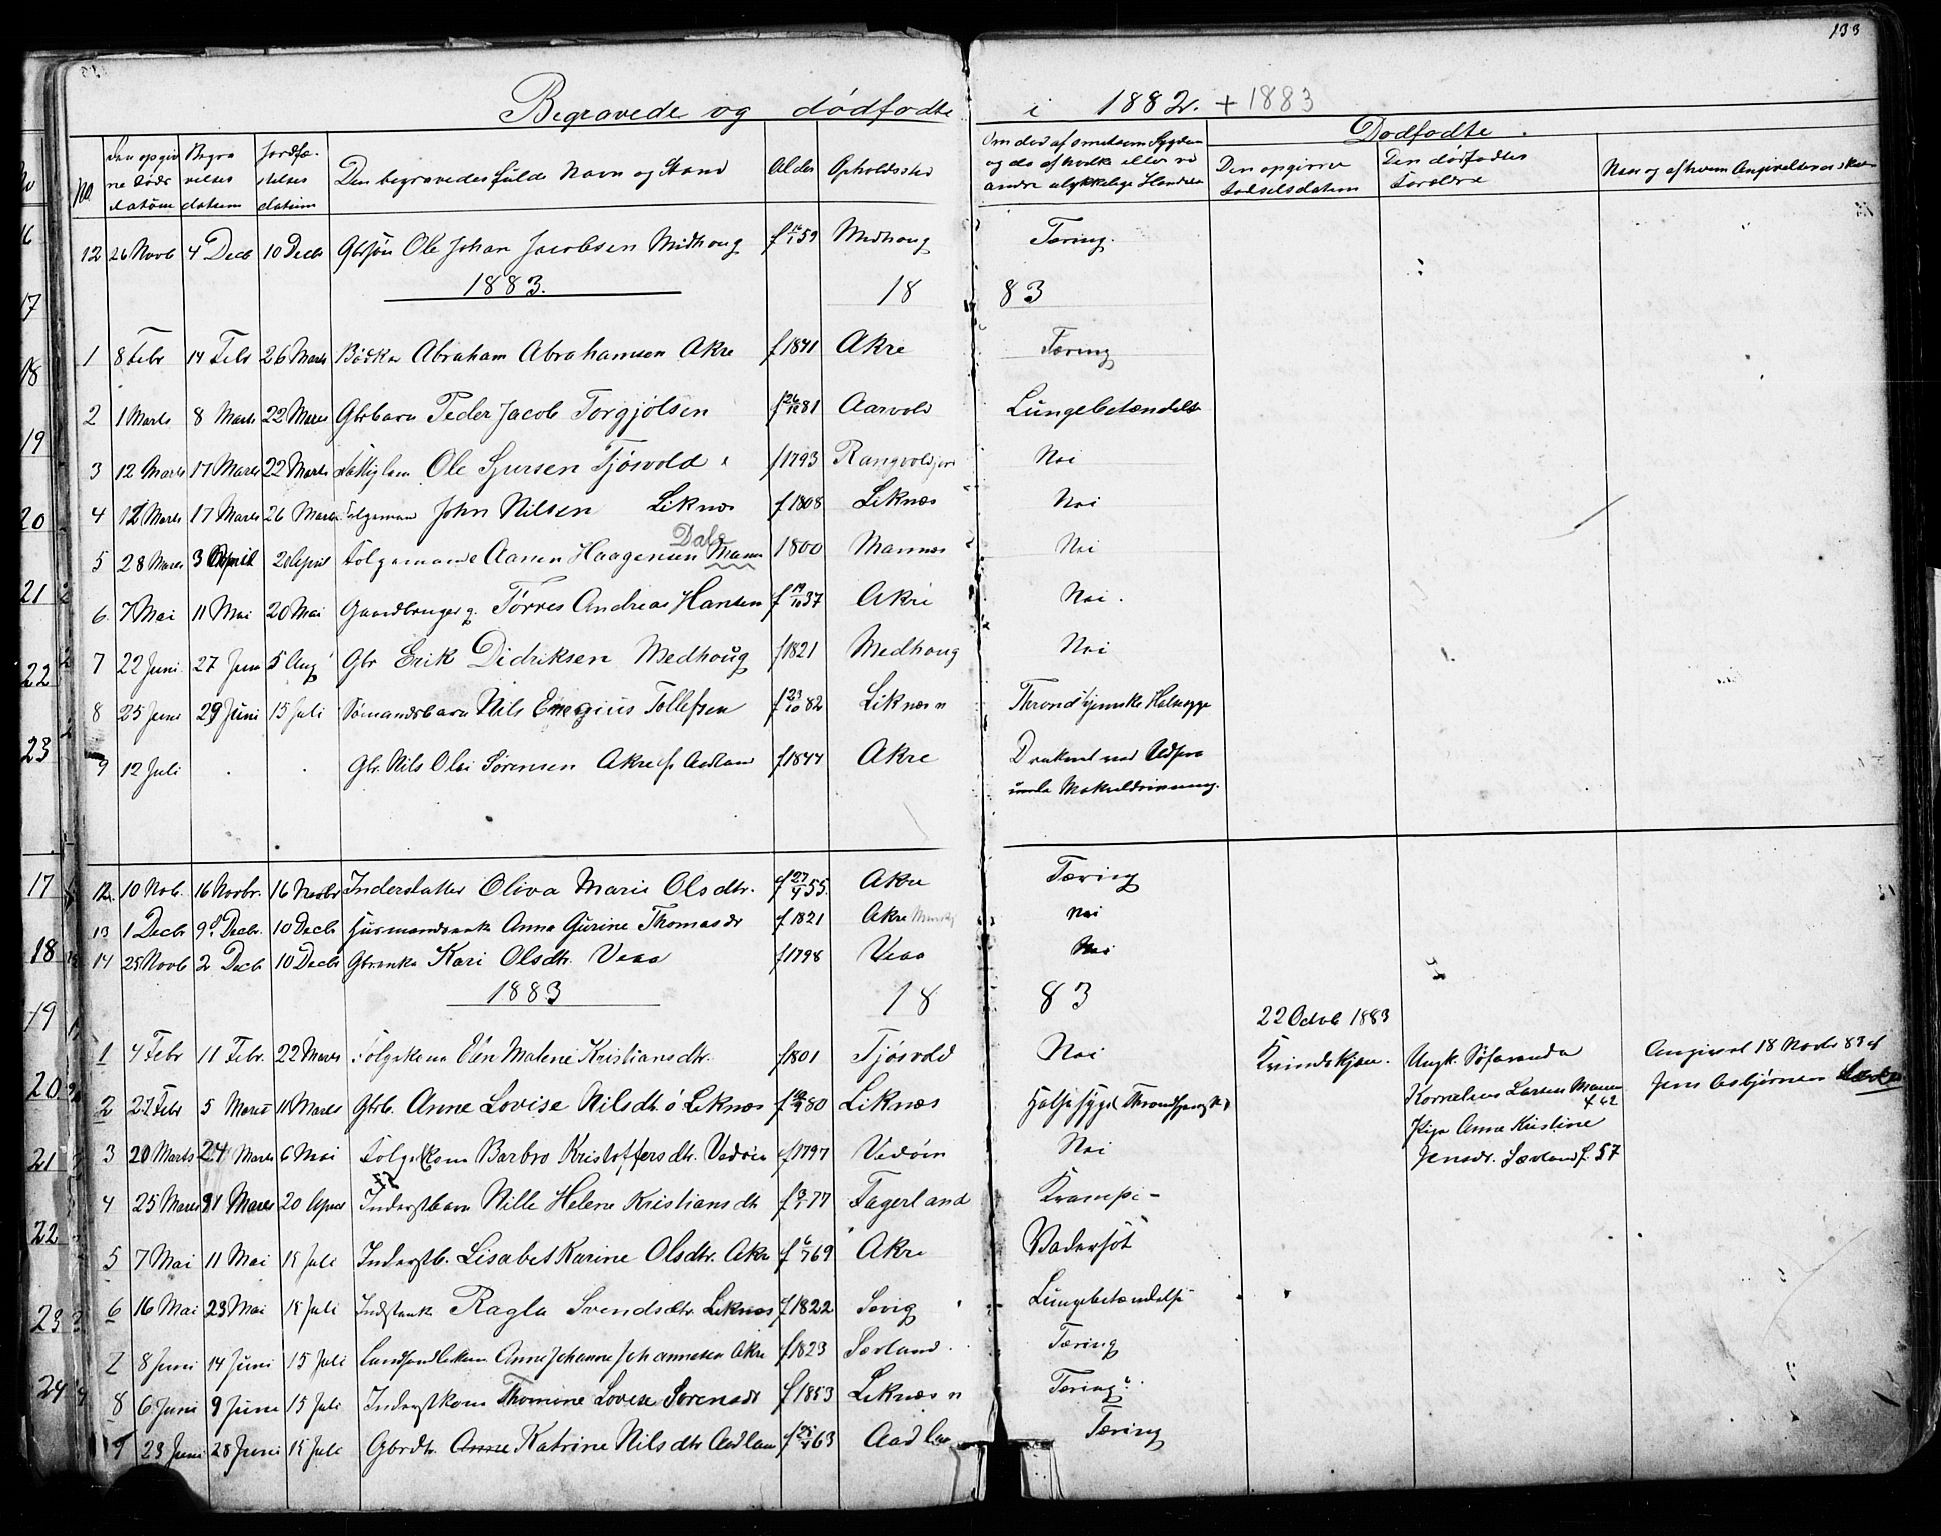 133
Begravede og dödfödte i 1882. + 1883
No
Den opgivne Döds datum
Begravelses datum
Jordfæstelses datum
Den begravedes fulde Navn og Stand
Alder
Opholdssted
Om död af smitsom Sygdom og da af hvilke eller ved andre ulykkelige Hændelser
Dödfödte.
Den opgivne Födselsdatum
Den dödfödtes Forældre
Naar og af hvem Angivelsen er skeet
12 26 Novb 4 Decb 10 Decb Gbrsön Ole Johan Jacobsen Medhoug f 59 Medhoug Tæring.
1883. 18 83
1 8 Febr 14 Feb 26 Marts Bödker Abraham Abrahamsen Akre f 1841 Akre Tæring
2 1 Marts 8 Marts 22 Marts Gbrbarn Peder Jacob Torgjölsen f 26/12 81 Aarvold Lungebetændelse
3 12 Marts 17 Marts 22 Marts Fattiglem Ole Sjursen Tjösvold f 1793 Nei
4 12 Marts 17 Marts 26 Marts Folgemand John Nilsen Liknes f 1808 Liknæs Nei
Dale
5 28 Marts 3 April 20 April Folgemand Aanen Haagensen Mannes 1800 Mannes Nei
6 7 Mai 11 Mai 20 Mai Gaardbruger g. Törres Andreas Hansen f 19/10 37 Akre Nei.
7 22 Juni 27 Juni 5 Aug Gbr Erik Didriksen Medhoug f 1821 Medhoug Nei
8 25 Juni 29 Juni 15 Juli Sömandsbarn Nils Tollefsen f 23/10 82 Liknæs n Throndhjemske Halssyge
9 12 Juli . . Gbr. Nils Olai Sörensen Akre f. Aadland f 1844 Akre Druknet ved Udsira under Makreldrivning.
12 10 Nob. 16 Novbr. 16 Novbr Inderstdatter Oliva Marie Olsdtr. f 27/4 55 Akre Tæring
13 1 Decb 9 Decbr. 10 Decb Husmandsenke Anna Gurine Thomasdr f 1821 Akre Nei
14 25 Novb 2 Decb 10 Decb Gbrenke Kari Olsdtr. Veaa f 1798 Veaa Nei
1883 18 83
1 4 Febr 11 Febr. 22 Marts Folgekone Elen Malene Kristiansdtr. f 1801 Tjösvold Nei
22 Octob 1883
Kvindekjön.
Ungk. Söfarende
Kornelius Larsen Mannes f 62
Pige Anna Kristine
Jensdr. Sævland f. 57
Angivet 18 Novbr 83 af
Jens Asbjörnsen
2 27 Febr 5 Marts 11 Marts Gbrb. Anne Lovise Nilsdtr ö Leknæs f 80 Liknæs Halssyge (Throndhjemske)
3 20 Marts 24 Marts 6 Mai Folgekone Barbro Kristoffersdtr. Vedöen f 1797 Vedöen Nei
4 25 Marts 31 Marts 20 April Inderstbarn Nille Helene Kristiansdtr f 77 Fagerland Krampe
5 7 Mai 11 Mai 15 Juli Inderstb. Lisabet Karine Olsdtr. Akre f 6/7 69 Akre Vadersöt
6 16 Mai 23 Mai 15 Juli Indstenke Ragla Svendsdtr. Leknæs f 1822 Sevig Lungebetændelse
7 8 Juni 14 Juni 15 Juli Anne Johanne Johannesen Akre f 1823 Sævland Tæring
8 6 Juni 9 Juni 15 Juli Inderstkone Thomine Lovise Sörensdr f 1853 Liknæs n Tæring
9 23 Juni 28 Juni 15 Juli Gbrdtr. Anne Katrine Nilsdtr Aadland f 63 Aadland Tæring
16
17
18
19
20
21
22
23
17
18
19
20
21
22
23
24